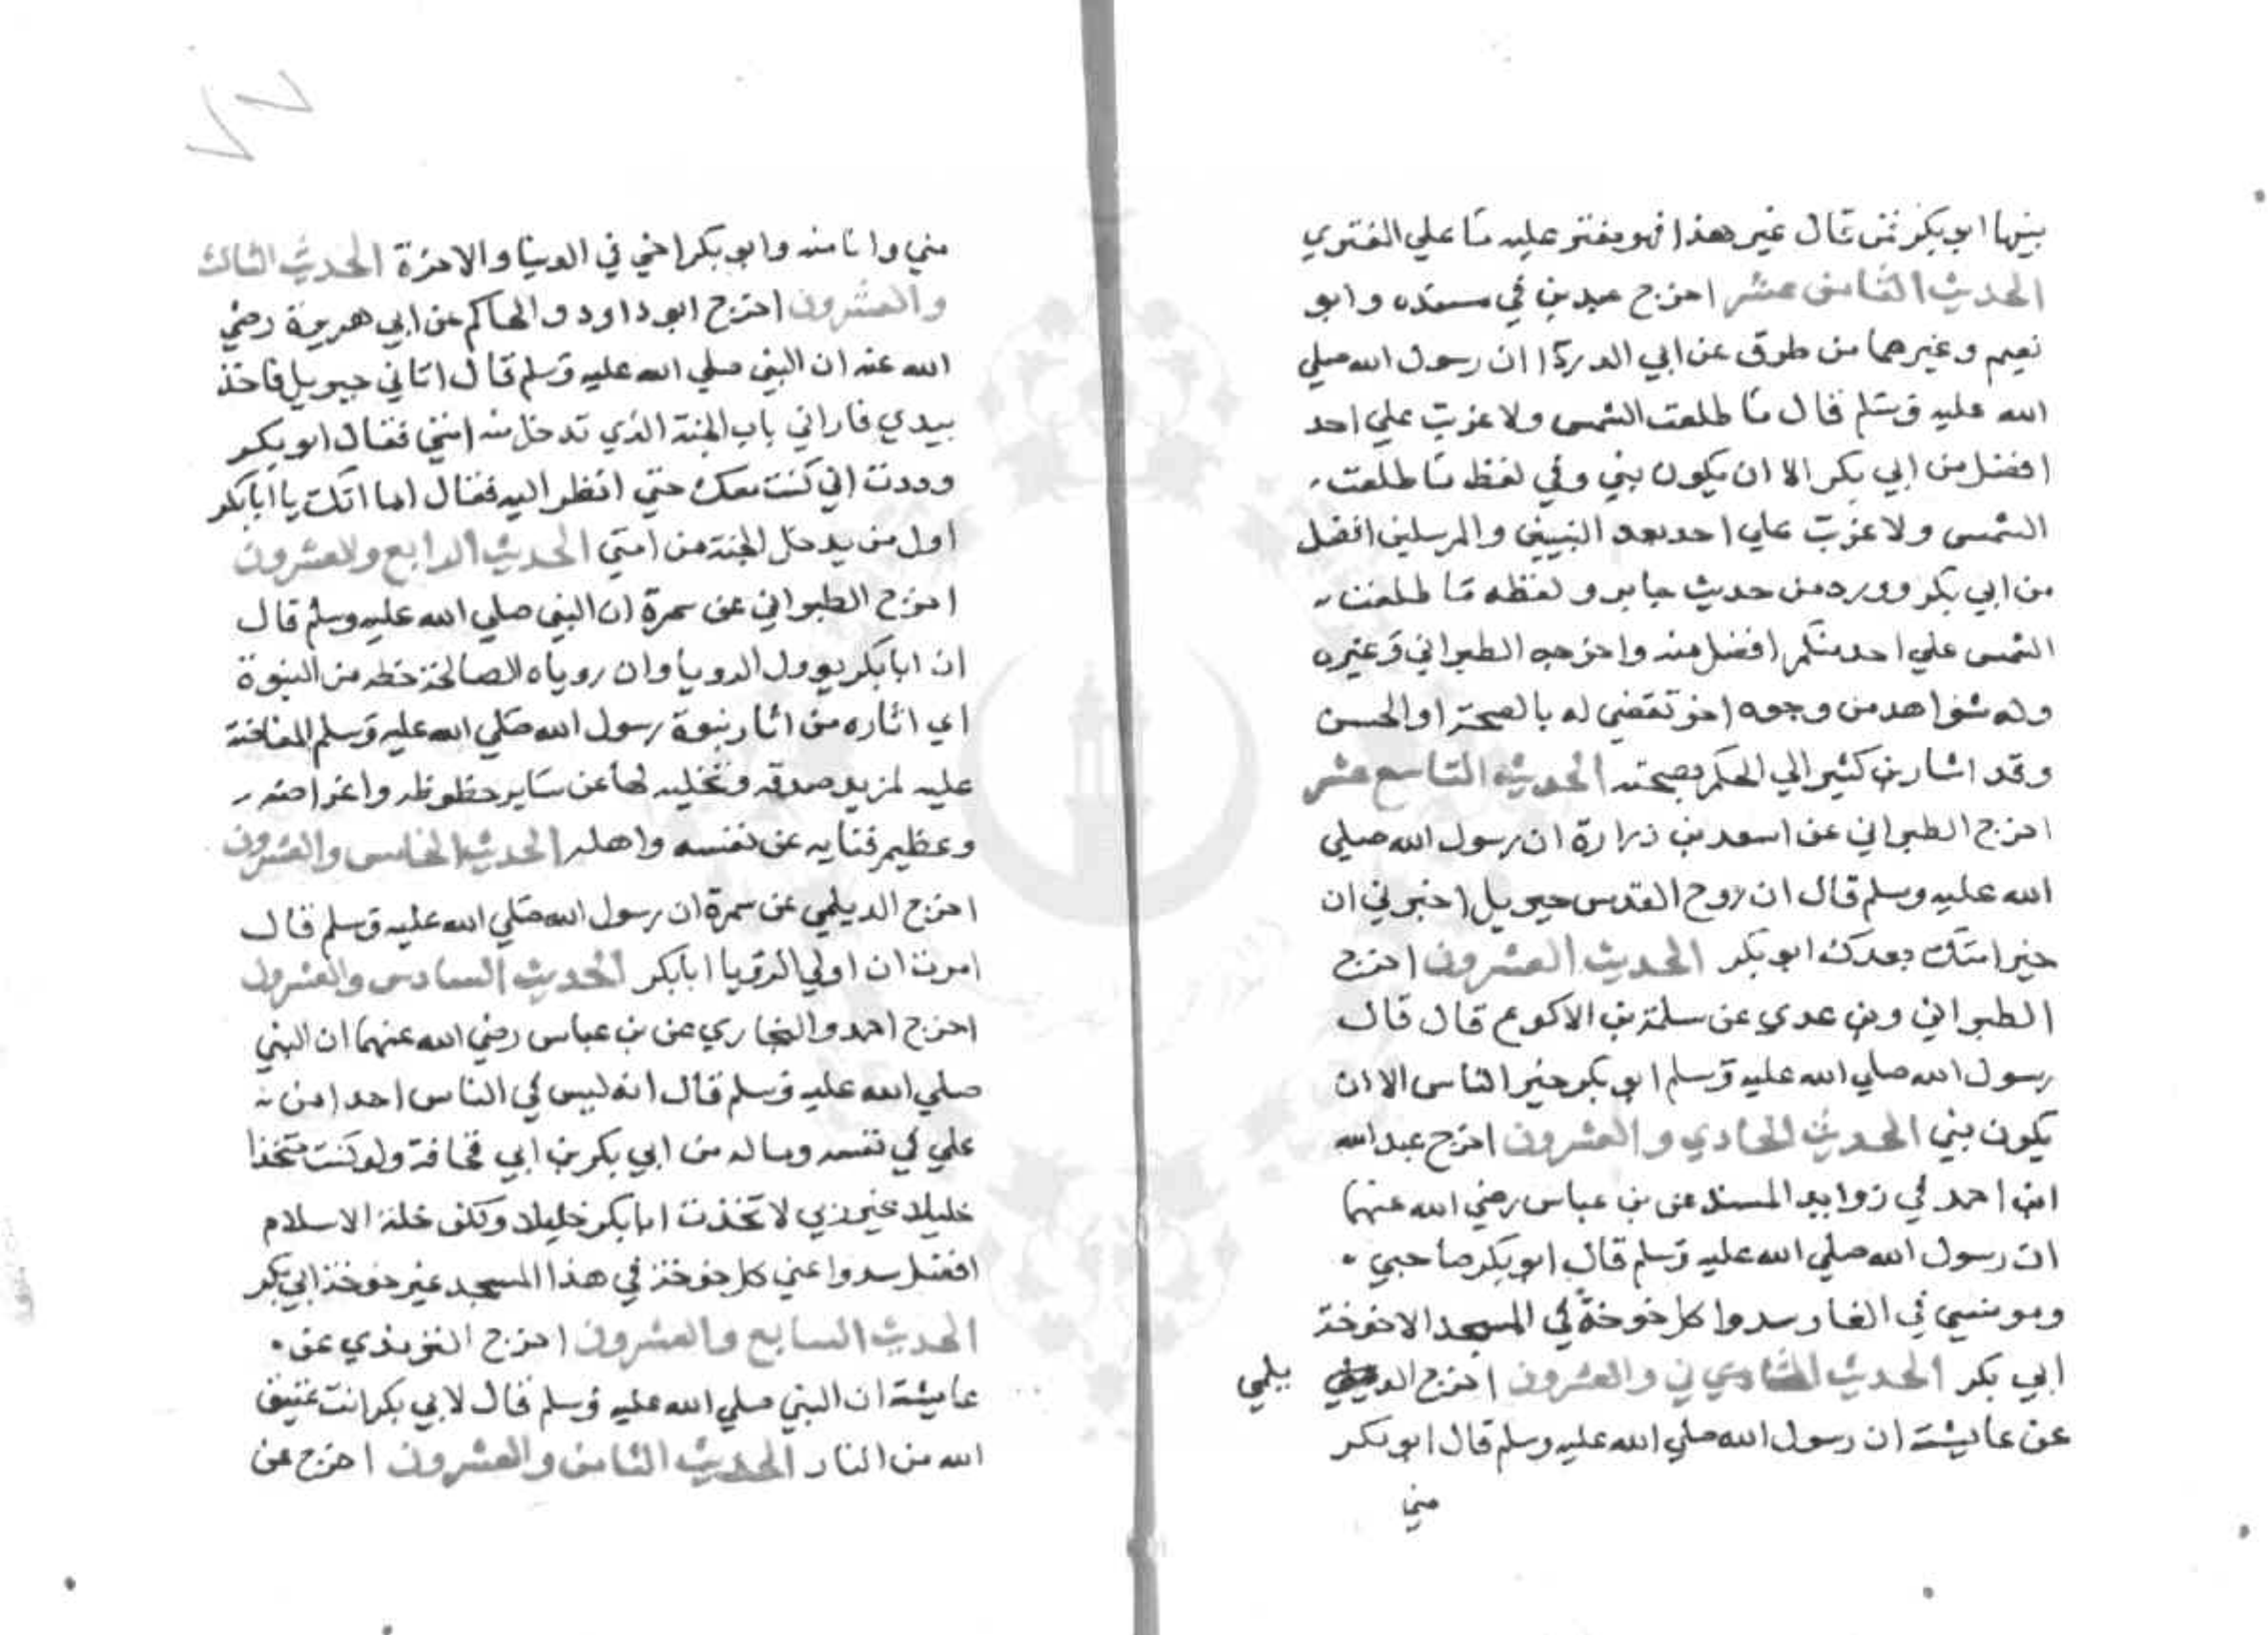 بينها ابو بكر فمن قال غير هذا فهو مفتر عليه ما علي المفتري
الحديث الثامن عشر اخرج عبد بن في مسنده وابو
نعيم وغيرهما من طرق عن ابي الدردا ان رسول الله صلي
الله عليه وسلم قال ما طلعت الشمس ولا غربت علي احد
افضل من ابي بكر الا ان يكون نبي وفي لفظ ما طلعت
الشمس ولا غربت علي احد بعد النبيين والمرسلين افضل
من ابي بكر وورد من حديث جابر ولفظه ما طلعت
الشمس علي احد منكم افضل منه واخرجه الطبراني وغيره
وله شواهد من وجوه اخر تقضي له بالصحة او الحسن
وقد اشار بن كثير الي الحكم بصحته الحديث التاسع عشر
اخرج الطبراني عن اسعد بن زرارة ان رسول الله صلي
الله عليه وسلم قال ان روح القدس جبريل اخبرني ان
خير امتك بعدك ابو بكر الحديث العشرون اخرج
الطبراني وبن عدي عن سلمة بن الاكوع قال قال
رسول الله صلي الله عليه وسلم ابو بكر خير الناس الا ان
يكون نبي الحديث الحادي والعشرون اخرج عبد الله
ابن احمد في زوايد المسند عن بن عباس رضي الله عنهما
ان رسول الله صلي الله عليه وسلم قال ابو بكر صاحبي
ومونسي في الغار سدوا كل خوخة في المسجد الا خوخة
ابي بكر الحديث الثاني والعشرون اخرج الديلمي
عن عايشة ان رسول الله صلي الله عليه وسلم قال ابو بكر
مني
٧٢
مني وانا منه وابو بكر اخي في الدنيا والاخرة الحديث الثالث
والعشرون اخرج ابو داود والحاكم عن ابي هريرة رضي
الله عنه ان النبي صلي الله عليه وسلم قال اتاني جبريل فاخذ
بيدي فاراني باب الجنة الذي تدخل منه امتي فقال ابو بكر
وددت اني كنت معك حتي انظر اليه فقال اما انك يا ابا بكر
اول من يدخل الجنة من امتي الحديث الرابع والعشرون
اخرج الطبراني عن سمرة ان النبي صلي الله عليه وسلم قال
ان ابا بكر يوول الرويا وان روياه الصالحة حظه من النبوة
اي اثاره من اثار نبوة رسول الله صلي الله عليه وسلم المفاضة
عليه لمزيد صدقه وتخليه لها عن ساير حظوظه واغراضه
وعظيم فنايه عن نفسه واهله الحديث الخامس والعشرون
اخرج الديلمي عن سمرة ان رسول الله صلي الله عليه وسلم قال
امرت ان اولي الرويا ابا بكر الحديث السادس والعشرون
اخرج احمد والبخاري عن بن عباس رضي الله عنهما ان النبي
صلي الله عليه وسلم قال انه ليس في الناس احد امن
علي في نفسه وماله من ابي بكر بن ابي قحافة ولو كنت متخذا
خليلا غير ربي لاتخذت ابا بكر خليلا ولكن خلة الاسلام
افضل سدوا عني كل خوخة في هذا المسجد غير خوخة ابي بكر
الحديث السابع والعشرون اخرج الترمذي عن
عايشة ان النبي صلي الله عليه وسلم قال لابي بكر انت عتيق
الله من النار الحديث الثامن والعشرون اخرج عن